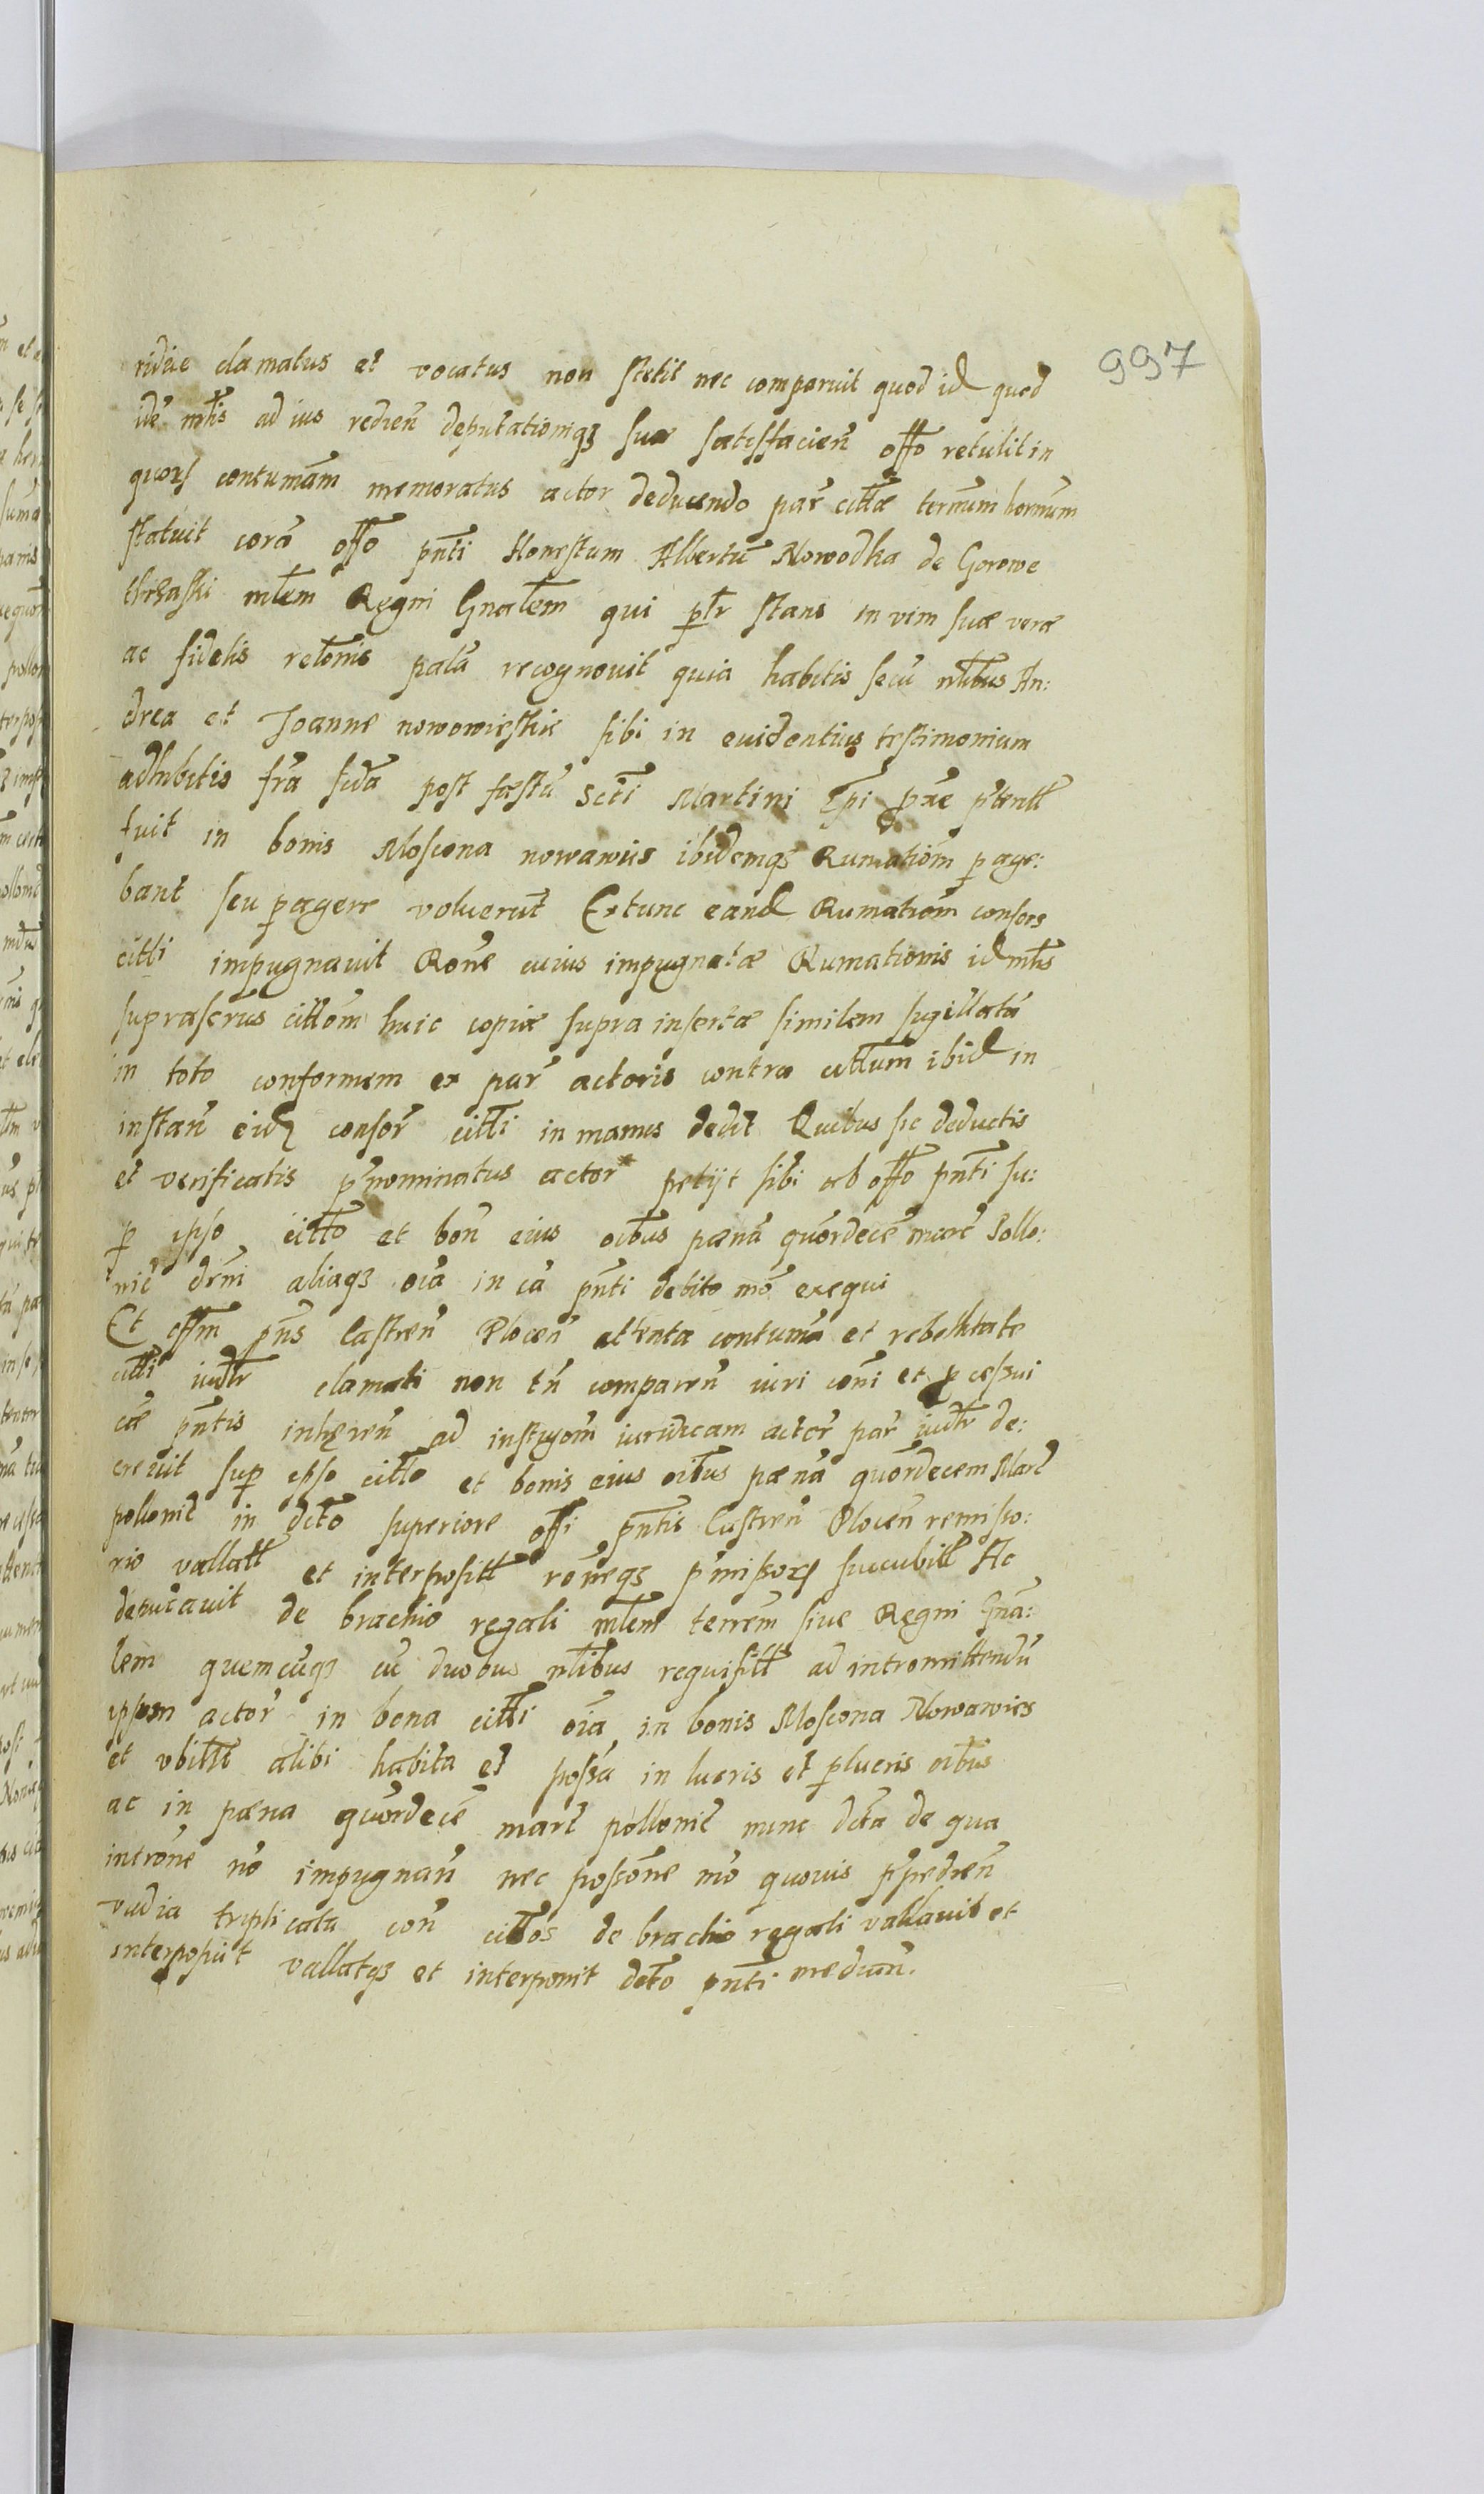 997
ridice clamatus et vocatus non stetit nec comparuit quod id quod
idē mtis ad ius redieñ deputationiqȝ suæ satisfacieñ offo retulit in
quorȝ contumām memoratus actor deducendo par̃ cittæ termūm hornūm
statuit corā offo pñti Honestum Albertū Nowodka de Gorowe
mlem Regni Gnalem qui pr̃ stans in vim suæ veræ
ac fidelis reloñis palā recognouit quia habitis secū nlibus An:
drea et Joanne nowowieskie sibi in euidentius testimonium
adhibitis fr̃a scda post festū Scti Martini Epi px̃e pterit
fuit in bonis Moscona nowawiis ibidemqȝ Rumatiōm page:
bant seu pagere voluerūt Extunc eand Rumatiōm consors
citti impugnauit Rone cuius impugnatæ Rumationis id mtis
suprascrus cittōm huic copiæ supra insertæ similem sugillatā
in toto conformem ex par̃ actoris contra cittum ibid in
instañ eidȝ consor̃ citti in manus dedit Quibus sic deductis
et verificatis pnominatus actor petijt sibi ab offo pñti su:
p ipso citto et boñ eius oibus pænā quordecē marc̃ Pollo:
nic̃ dr̃ni aliaqȝ oia in cā pñti debito mō exequi
Et offm pñs Castreñ Ploceñ attenta contumā et rebellitate
citti iudtr clamati non tñ compareñ iuri coñi et pcessui
cæ pñtis inhęreñ ad instiyōm iuridicam actor̃ par̃ iudtr de:
creuit sup ipso citto et bonis eius oibus pænā quordecem Marc̃
pollonic̃ in dcto superiore offi pñtis Castreñ Ploceñ remisso:
rio vallatt et interpositt rōneqȝ pmissorȝ succubitt Ac
deputauit de brachio regali mlem terrēm siue Regni Gnā:
lem quemcūqȝ cū duobus nlibus requisitt ad intromittendū
ipsum actor̃ in bona citti oia in bonis Moscona Nowawies
et vbiltt alibi habita et possa in lucris et plucris oibus
ac in pæna quordecē marc̃ pollonic̃ nunc dcta de qua
introñe nō impugnañ nec possoñe mō quouis ppedieñ
vadia triplicata coñ cittos de brachio regali vallauit et
interposuit vallatqȝ et interponit dcto pñti mediañ.